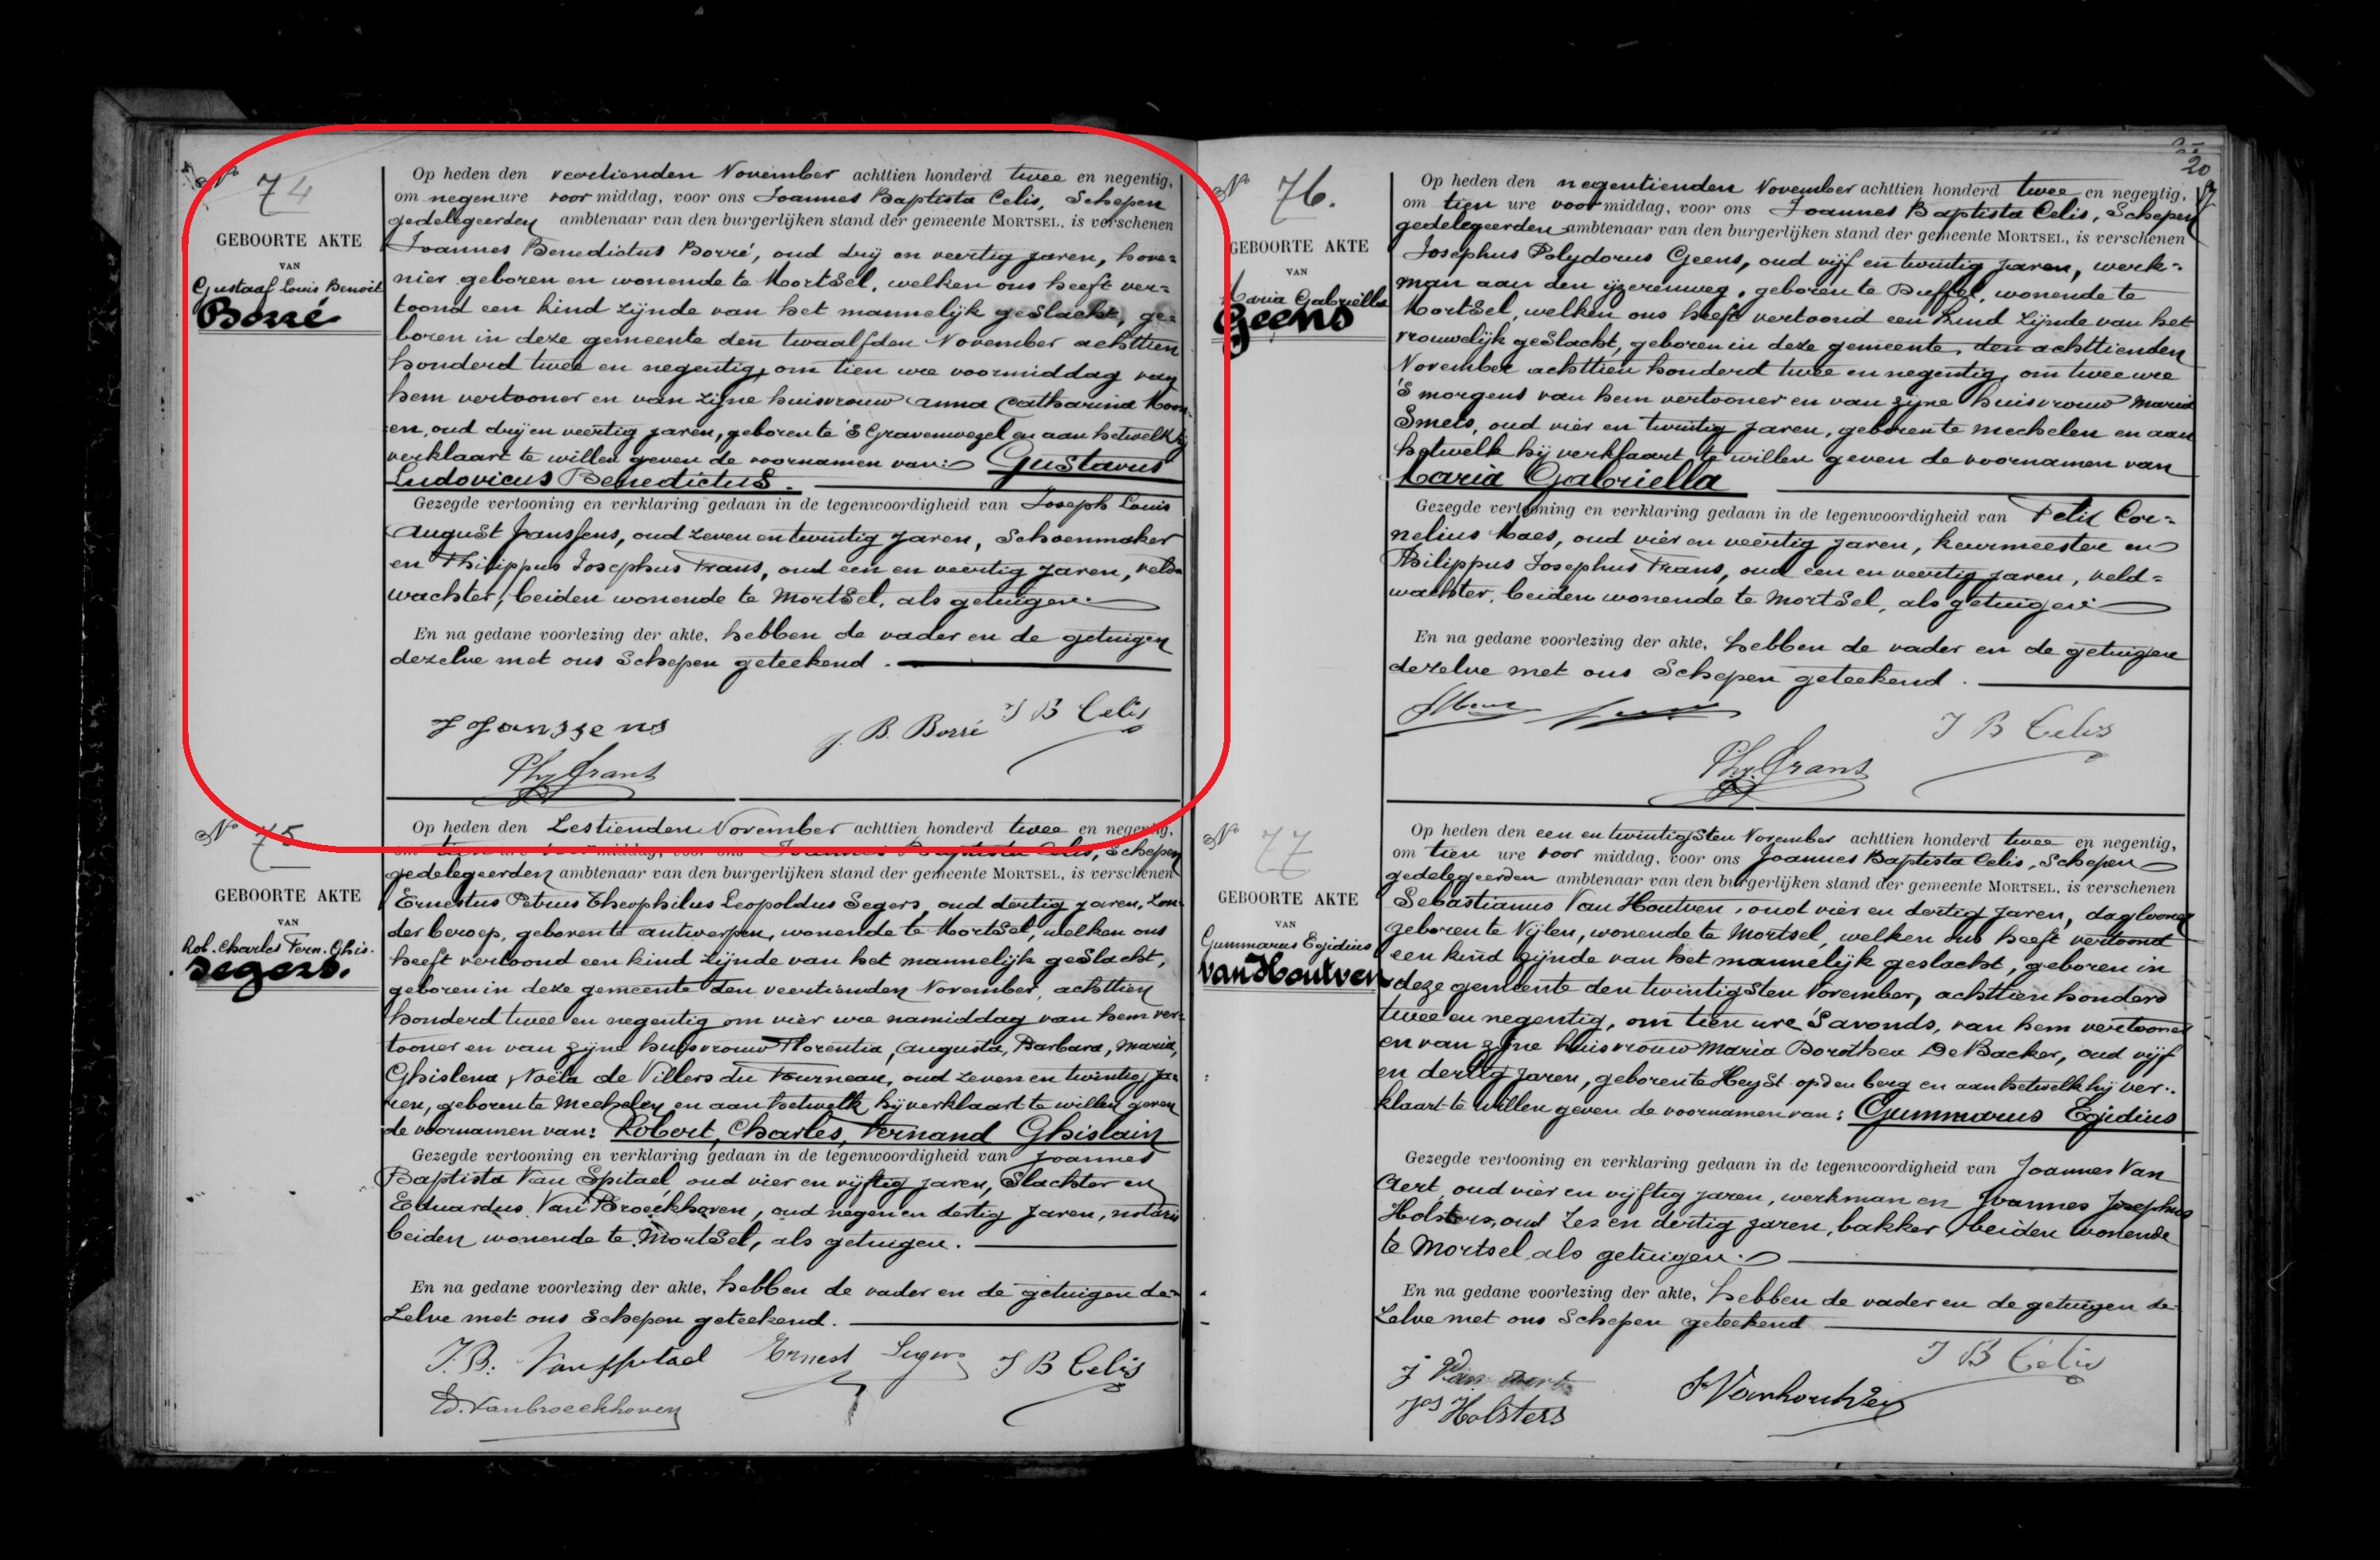 Nº 74
GEBOORTE AKTE
VAN
Gustaaf Louis Benoit
Borré
Op heden den veertienden November achttien honderd twee en negentig,
om negen ure voor middag, voor ons Joannes Baptista Celis, Schepen
gedelegeerden ambtenaar van den burgerlijken stand der gemeente MORTSEL, is verschenen
Joannes Benedictus Borré, oud drij en veertig jaren, hove=
nier geboren en wonende te Mortsel, welken ons heeft ver=
toond een kind zijnde van het mannelijk geslacht, ge=
boren in deze gemeente den twaalfden November achttien
honderd twee en negentig, om tien ure voormiddag van
hem vertooner en van zijne huisvrouw Anna Catharina
en, oud drij en veertig jaren, geboren te 'S Gravenwezel en aan hetwelk hij
verklaart te willen geven de voornamen van: Gustavus
Ludovicus Benedictus.
Gezegde vertooning en verklaring gedaan in de tegenwoordigheid van Joseph Louis
August Janssens, oud zeven en twintig jaren, Schoenmaker
en Philippus Josephus Frans, oud een en veertig jaren, veld=
wachter, beiden wonende te Mortsel, als getuigen.
En na gedane voorlezing der akte, hebben de vader en de getuigen
dezelve met ons Schepen geteekend.
J Janssens J. B. Borré J B Celis
Ph. Frans
Nº 75
GEBOORTE AKTE
VAN
Rob. Charles Fern. Ghis.
Segers.
Op heden den Zestienden November achttien honderd twee en negentig,
om tien ure voor middag, voor ons Joannes Baptista Celis, Schepen
gedelegeerden ambtenaar van den burgerlijken stand der gemeente MORTSEL, is verschenen
Ernestus Petrus Theophilus Leopoldus Segers, oud dertig jaren, zon=
der beroep, geboren te Antwerpen, wonende te Mortsel, welken ons
heeft vertoond een kind zijnde van het mannelijk geslacht,
geboren in deze gemeente den veertienden November, achttien
honderd twee en negentig om vier ure namiddag van hem ver=
tooner en van zijne huisvrouw Florentia, Augusta, Barbara, Maria,
Ghislena, Noëla de Villers du Fourneau, oud zeven en twintig ja=
ren, geboren te Mechelen en aan hetwelk hij verklaart te willen geven
de voornamen van: Robert, Charles, Fernand Ghislain
Gezegde vertooning en verklaring gedaan in de tegenwoordigheid van Joannes
Baptista Van Spitael, oud vier en vijftig jaren, Slachter en
Eduardus Van Broeckhoven, oud negen en dertig jaren, notaris
beiden wonende te Mortsel, als getuigen.
En na gedane voorlezing der akte, hebben de vader en de getuigen de=
zelve met ons Schepen geteekend.
J. B. Van Spitael Ernest Segers J B Celis
Ed. Vanbroeckhoven
20
Nº 76.
GEBOORTE AKTE
VAN
Maria Gabriella
Geens
Op heden den negentienden November achttien honderd twee en negentig,
om tien ure voor middag, voor ons Joannes Baptista Celis, Schepen
gedelegeerden ambtenaar van den burgerlijken stand der gemeente MORTSEL, is verschenen
Josephus Polydorus Geens, oud vijf en twintig jaren, werk=
man aan den ijzerenweg, geboren te Duffel, wonende te
Mortsel, welken ons heeft vertoond een kind zijnde van het
vrouwelijk geslacht, geboren in deze gemeente, den achttienden
November achttien honderd twee en negentig, om twee ure
's morgens van hem vertooner en van zijne huisvrouw Maria
Smets, oud vier en twintig jaren, geboren te Mechelen en aan
hetwelk hij verklaart te willen geven de voornamen van
Maria Gabriella
Gezegde vertooning en verklaring gedaan in de tegenwoordigheid van Felix Cor=
nelius Maes, oud vier en veertig jaren, keurmeester en
Philippus Josephus Frans, oud een en veertig jaren, veld=
wachter, beiden wonende te Mortsel, als getuigen
En na gedane voorlezing der akte, hebben de vader en de getuigen
dezelve met ons Schepen geteekend.
J B Celis
Ph. Frans
Nº 77
GEBOORTE AKTE
VAN
Gummarus Egidius
Van Houtven
Op heden den een en twintigsten November achttien honderd twee en negentig,
om tien ure voor middag, voor ons Joannes Baptista Celis, Schepen
gedelegeerden ambtenaar van den burgerlijken stand der gemeente MORTSEL, is verschenen
Sebastianus Van Houtven, oud vier en dertig jaren, daglooner
geboren te Nijlen, wonende te Mortsel, welken ons heeft vertoond
een kind zijnde van het mannelijk geslacht, geboren in
deze gemeente den twintigsten November, achttien honderd
twee en negentig, om tien ure 's avonds, van hem vertooner
en van zijne huisvrouw Maria Dorothea De Backer, oud vijf
en dertig jaren, geboren te Heyst op den berg en aan hetwelk hij ver=
klaart te willen geven de voornamen van: Gummarus Egidius
Gezegde vertooning en verklaring gedaan in de tegenwoordigheid van Joannes Van
Aert, oud vier en vijftig jaren, werkman en Joannes Josephus
Holsters, oud zes en dertig jaren, bakker, beiden wonende
te Mortsel, als getuigen.
En na gedane voorlezing der akte, hebben de vader en de getuigen de
zelve met ons Schepen geteekend
J B Celis
J Van Aert
Jos Holsters S Vanhoutven